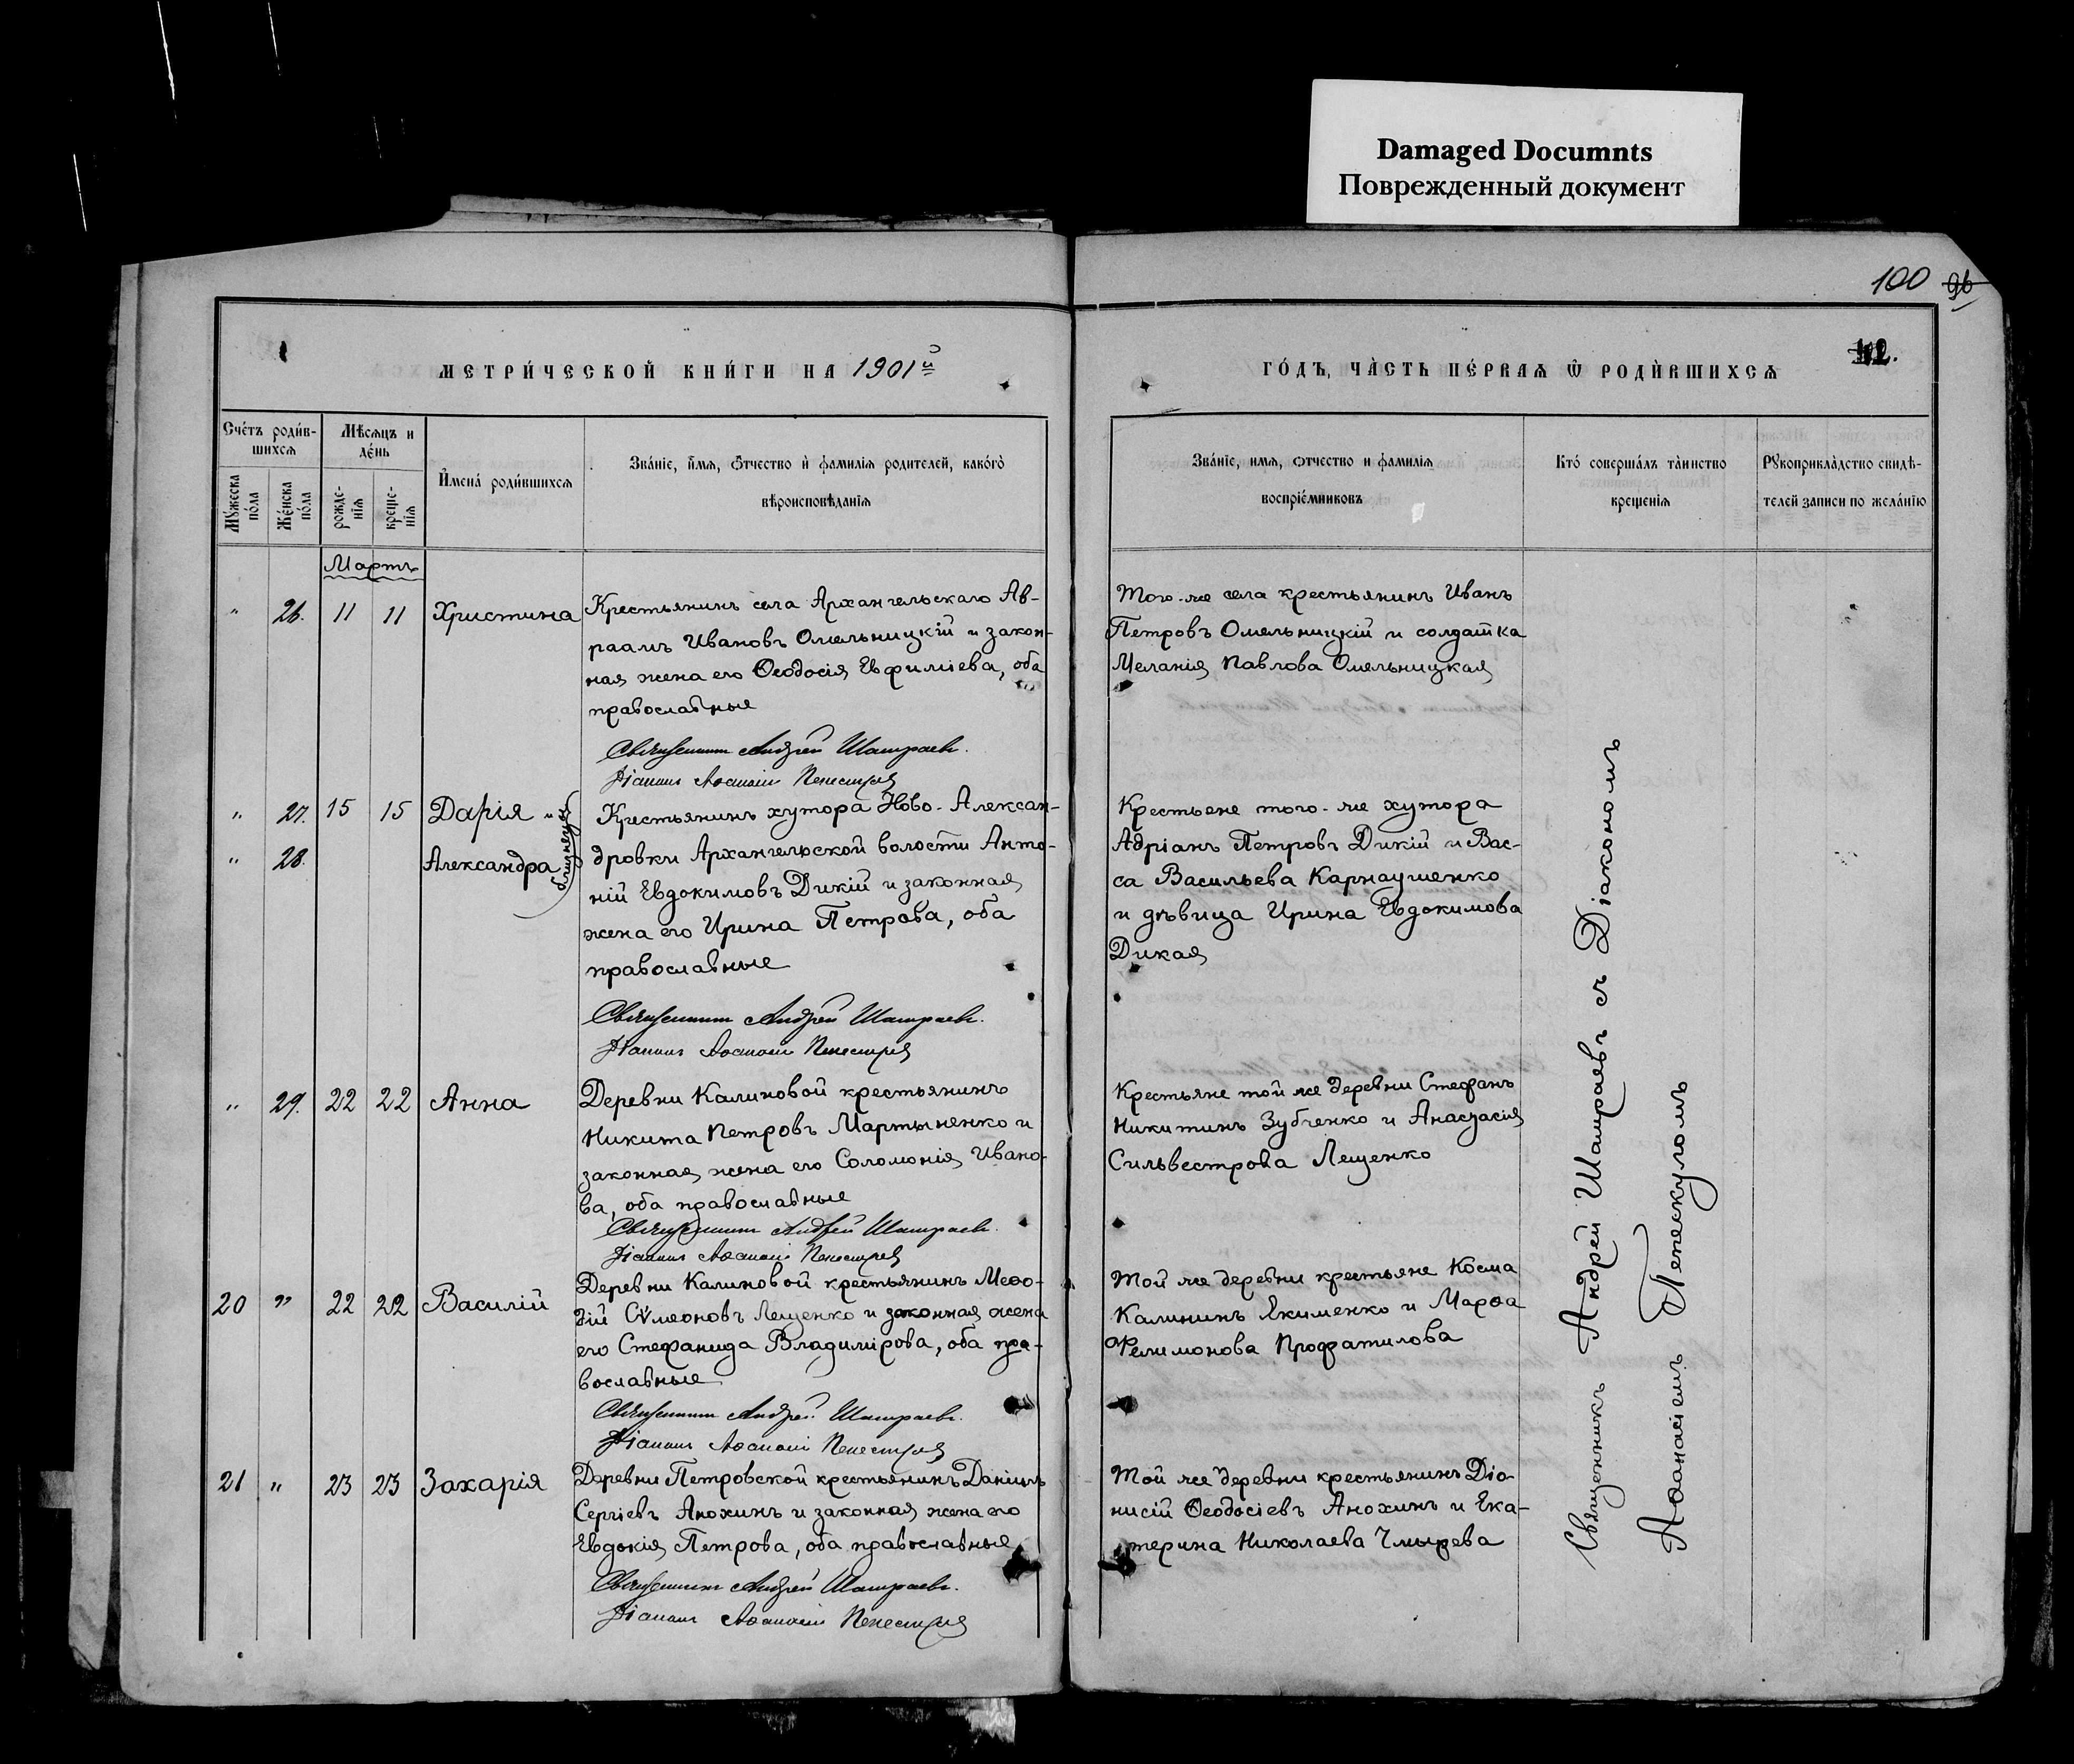 Damaged Documnts
Поврежденный документ
100 96
42.
МЕТРИ́ЧЕСКОЙ КНИ́ГИ НА 1901й
ГО́ДЪ, ЧА̀СТЬ ПЕ́РВАѦ Ѿ РОДИ́ВШИХСѦ
Сче́тъ роди́в-
шихсѧ
Мѣ́сѧцъ и
де́нь
Мꙋ́жеска
по́ла
Же́нска
по́ла
рожде-
нїѧ
креще-
нїѧ
И҆мена̀ роди́вшихсѧ
Зва́нїе, и҆́мѧ, ѻ҆́тчество и҆ фамилїѧ родителей, како́гѡ
вѣроисповѣ́данїѧ
Зва́нїе, имѧ, отчество и фамилїѧ
воспрїе́мниковъ
Кто́ соверша́лъ та̀инство
креще́нїѧ
Рꙋкоприкла́дство свидѣ́-
телей записи по жела́нїю
Мартъ
" 26. 11 11 Христина
Крестьянинъ села Архангельскаго Ав-
раамъ Ивановъ Омельницкій и закон-
ная жена его Ѳеодосія Евфиміева, оба
православные
Священникъ Андрей Шатраевъ.
Діаконъ Аѳанасій
Того-же села крестьянинъ Иванъ
Петровъ Омельницкій и солдатка
Меланія Павлова Омельницкая
" 27. 15 15 Дарія и
" 28. Александра
близнецы
Крестьянинъ хутора Ново-Алексан-
дровки Архангельской волости Анто-
ній Евдокимовъ Дикій и законная
жена его Ирина Петрова, оба
православные
Священникъ Андрей Шатраевъ.
Діаконъ Аѳанасій
Крестьене того-же хутора
Адріанъ Петровъ Дикій и Вас-
са Васильева Карнаушенко
и дѣвица Ирина Евдокимова
Дикая
" 29. 22 22 Анна
Деревни Калиновой крестьянинъ
Никита Петровъ Мартыненко и
законная жена его Соломонія Ивано-
ва, оба православные
Священникъ Андрей Шатраевъ.
Діаконъ Аѳанасій
Крестьяне той же деревни Стефанъ
Никитинъ Зубченко и Анастасія
Сильвестрова Лещенко
20 " 22 22 Василій
Деревни Калиновой крестьянинъ Меѳо-
дій Сѵмеоновъ Лещенко и законная жена
его Стефанида Владимірова, оба пра-
вославные
Священникъ Андрей Шатраевъ.
Діаконъ Аѳанасій
Той же деревни крестьяне Косма
Калининъ Якименко и Марѳа
Филимонова Профатилова
21 " 23 23 Захарія
Деревни Петровской крестьянинъ Даніилъ
Сергіевъ Анохинъ и законная жена его
Евдокія Петрова, оба православные
Священникъ Андрей Шатраевъ.
Діаконъ Аѳанасій
Той же деревни крестьянинъ Діо-
нисій Ѳеодосіевъ Анохинъ и Ека-
терина Николаева Чмырева
Священникъ Андрей Шатраевъ съ Діакономъ
Аѳанасіемъ